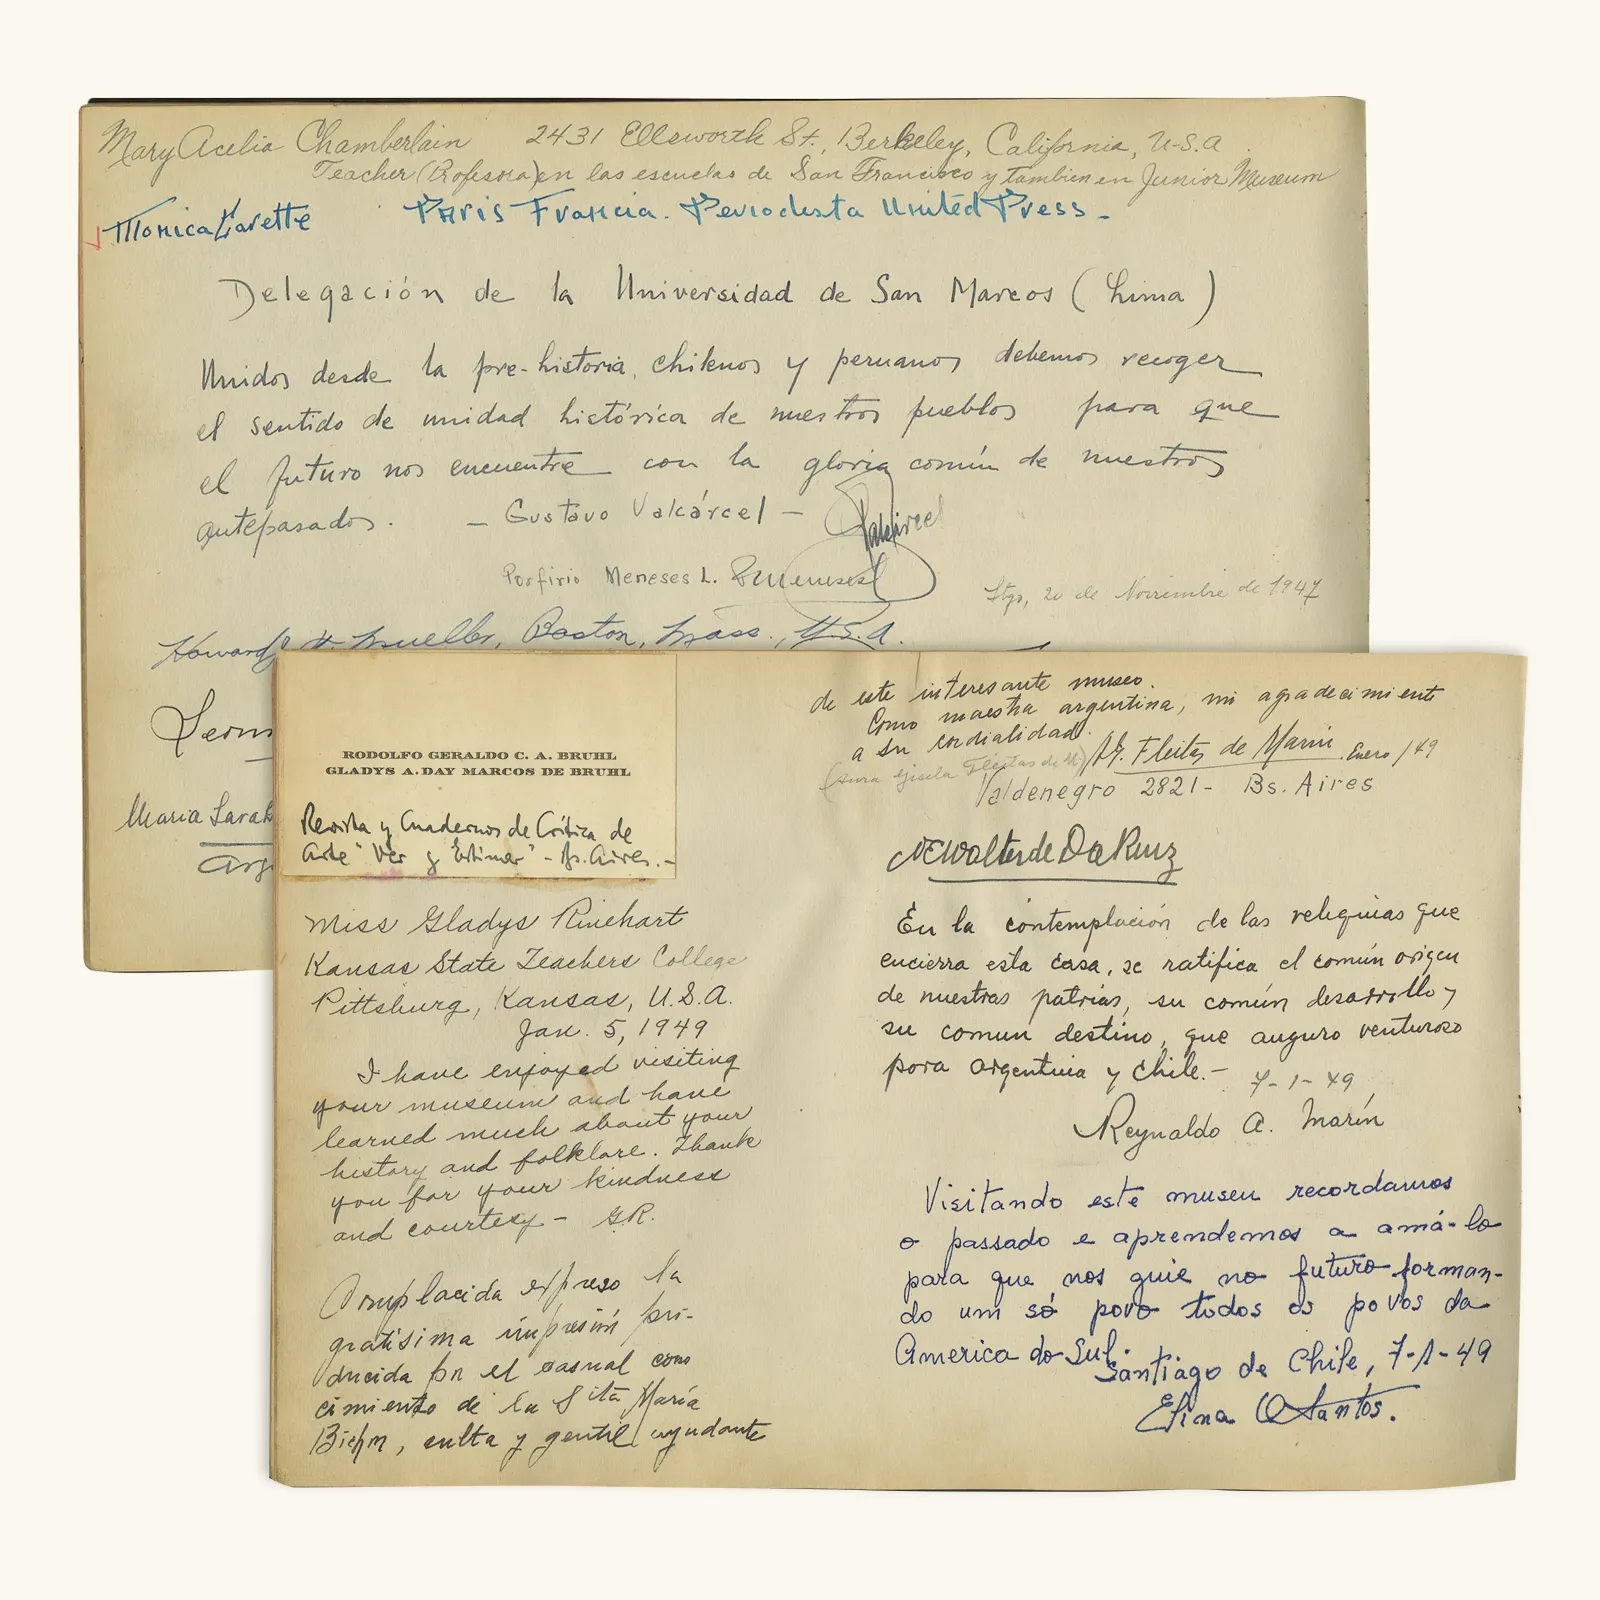 Mary Acelia Chamberlain 2431 Ellsworth St., Berkeley, California, U.S.A.
Teacher (Profesora) en las escuelas de San Francisco y tambien en Junior Museum
Monica Paris Francia. Periodista United Press -
Delegación de la Universidad de San Marcos (Lima)
Unidos desde la pre-historia, chilenos y peruanos debemos recoger
el sentido de unidad histórica de nuestros pueblos para que
el futuro nos encuentre con la gloria común de nuestros
antepasados. - Gustavo Valcárcel - Valcárcel
Porfirio Meneses L.
Stgo, 20 de Noviembre de 1947
Howard H. Mueller, Boston, Mass., U.S.A.
Maria Sarah
Arg
RODOLFO GERALDO C. A. BRUHL
GLADYS A. DAY MARCOS DE BRUHL
Revista y Cuadernos de Crítica de
Arte "Ver y Estimar" - Bs. Aires. -
Miss Gladys Rinehart
Kansas State Teachers College
Pittsburg, Kansas, U.S.A.
Jan. 5, 1949
I have enjoyed visiting
your museum and have
learned much about your
history and folklore. Thank
you for your kindness
and courtesy - GR.
Complacida expreso la
gratisima impresión pro-
ducida por el casual cono
cimiento de la Sita María
culta y gentil ayudante
de este interesante museo.
Como maestra argentina, mi agradecimiento
a su cordialidad.
Fleitas de Marin Enero/49
(Aura Gisela Fleitas de M.)
Valdenegro 2821 - Bs. Aires
En la contemplación de las reliquias que
encierra esta casa, se ratifica el común origen
de nuestras patrias, su común desarrollo y
su comun destino, que auguro venturoso
para argentina y Chile. - 7-1-49
Reynaldo A. Marín
Visitando este museu recordamos
o passado e aprendemos a amá-lo
para que nos guie no futuro forman-
do um só povo todos os povos da
America do Sul.
Santiago de Chile, 7-1-49
Elina Santos.